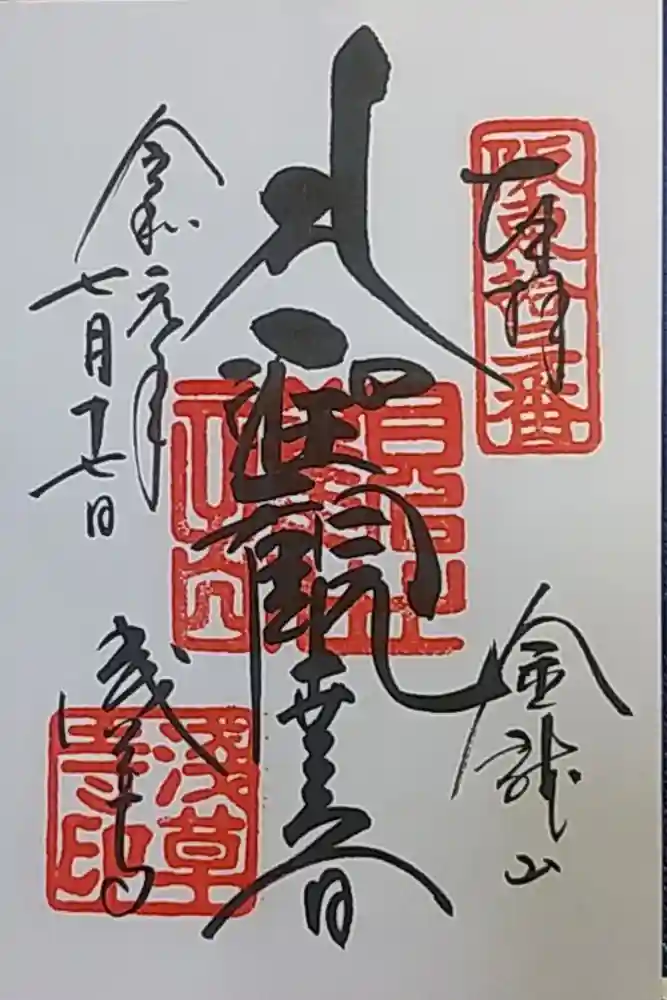 阪東十三番
奉拝
金龍山
聖觀世音
令和元年
七月十七日
浅草寺
浅草寺印